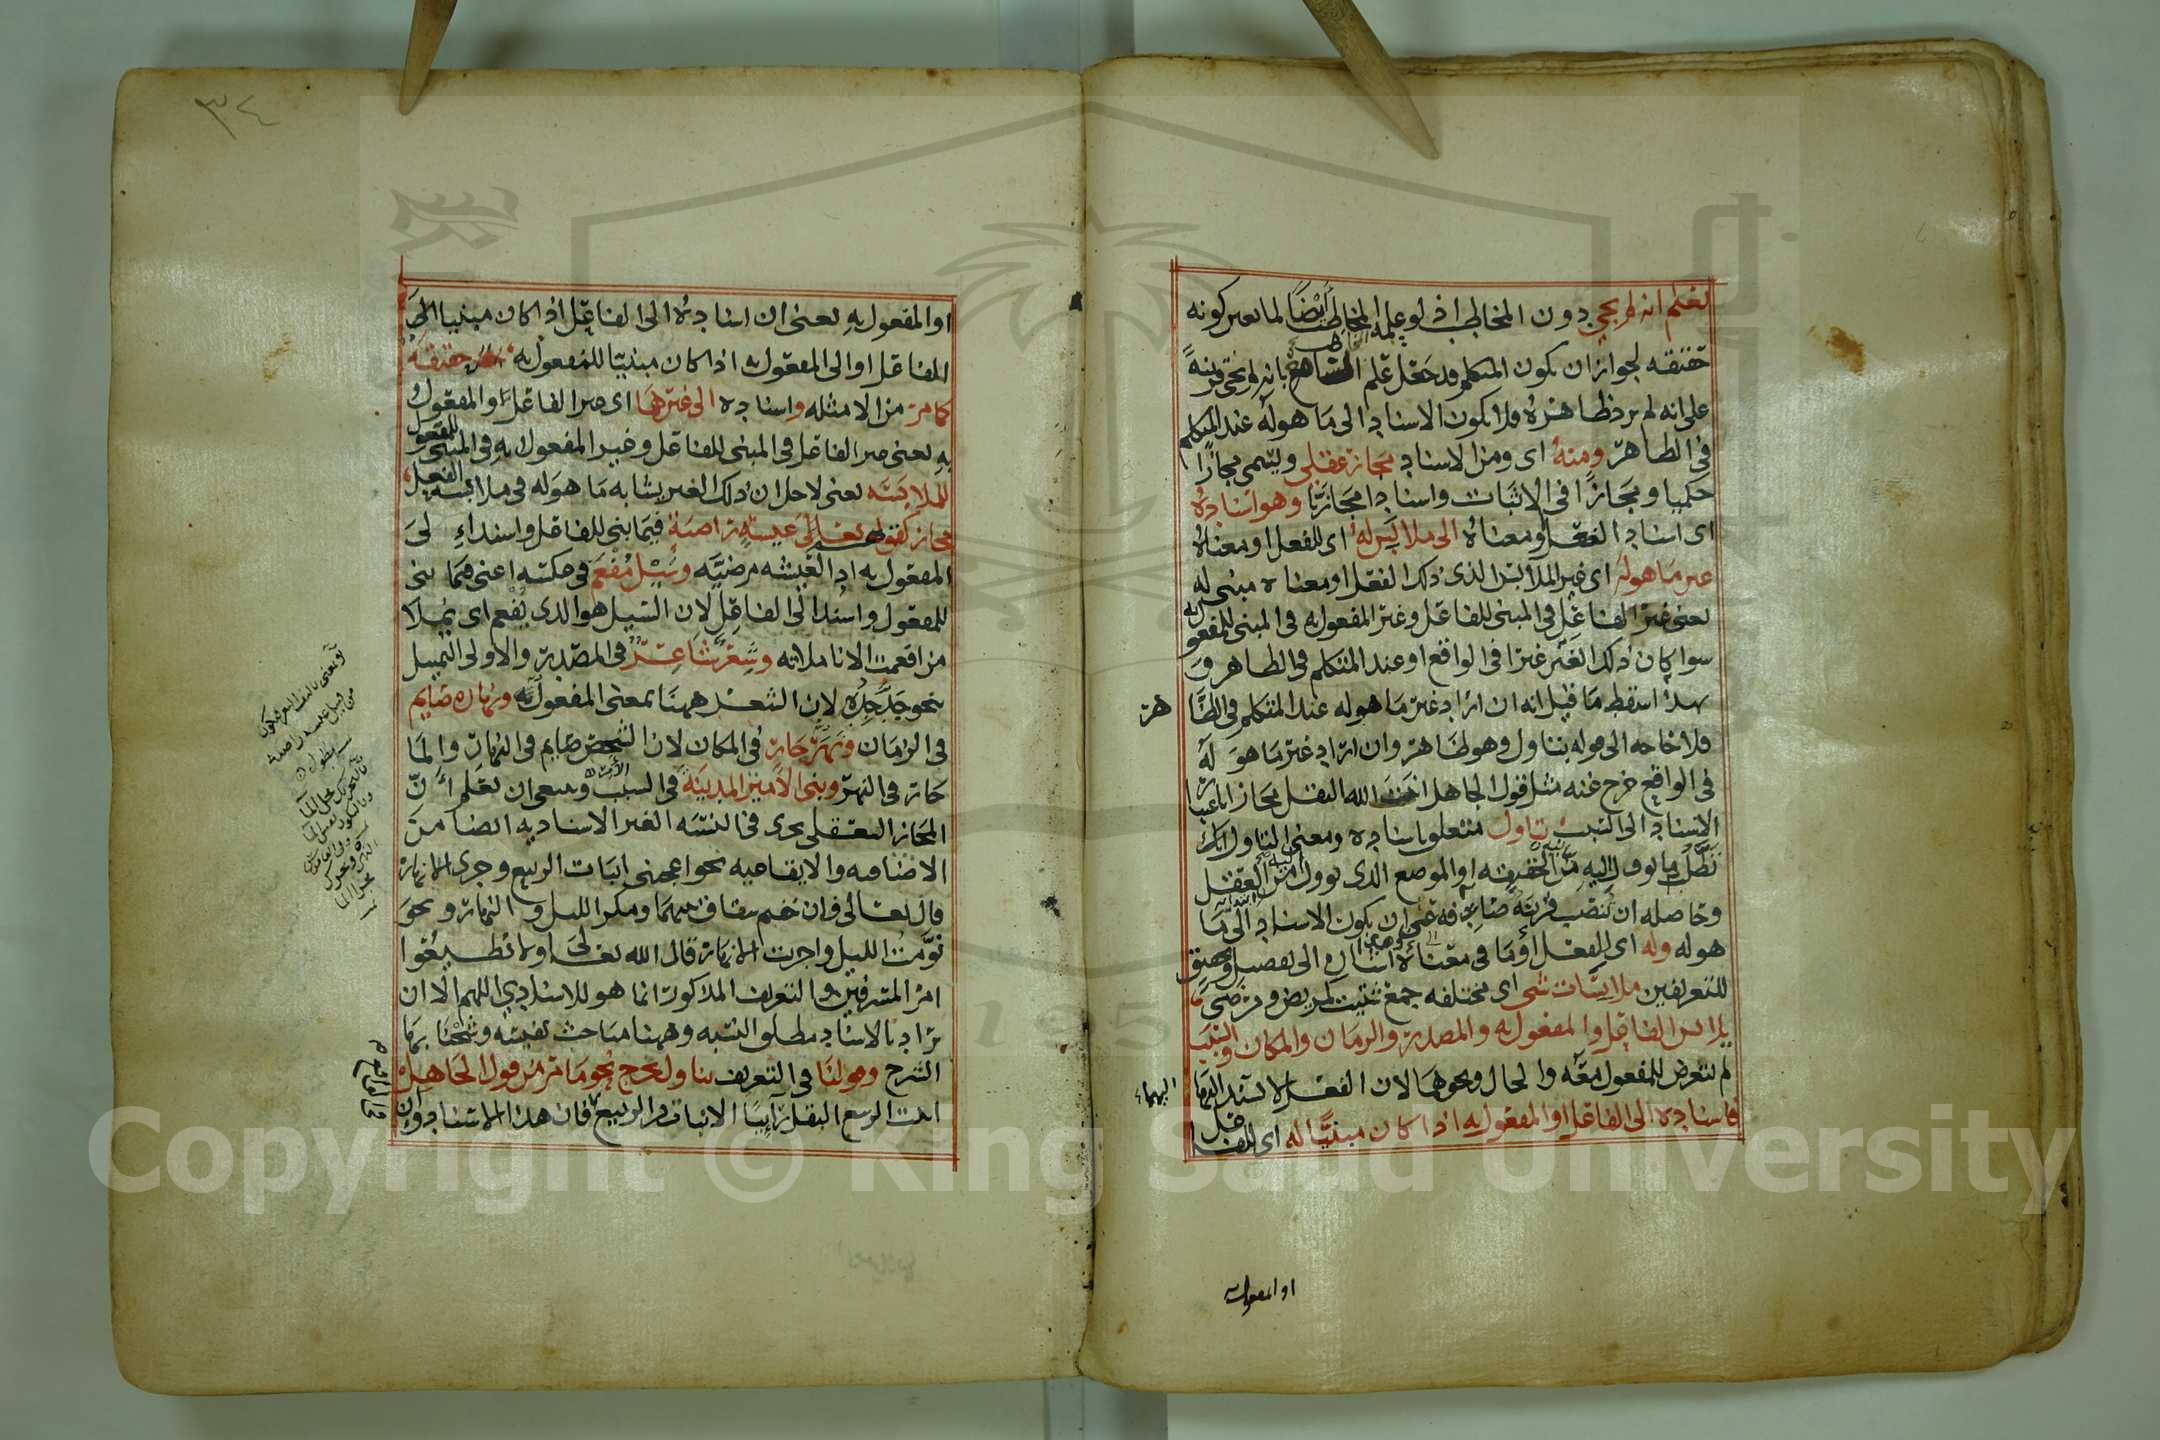 تعلم انه لم يجئ دون المخاطب اذ لو علمه المخاطب ايضا لما تعين كونه
حقيقه لجواز ان يكون المتكلم قد جعل علم السامع بانه لم يجئ قرينة
على انه لم يرد ظاهره فلا يكون الاسناد الى ما هو له عند المتكلم
في الظاهر ومنه اى ومن الاسناد مجاز عقلى ويسمى مجازا
حكميا ومجازا في الاثبات واسنادا مجازيا وهو اسناده
اى اسناد الفعل او معناه الى ملابس له اى للفعل او معناه
غير ما هو له اى غير الملابس الذى ذلك الفعل او معناه مبنى له
يعنى غير الفاعل في المبنى للفاعل وغير المفعول به في المبنى للمفعول به
سوا كان ذلك الغير غيرا في الواقع او عند المتكلم في الظاهر و
بهذا سقط ما قيل انه ان اراد غير ما هو له عند المتكلم في الظا
هر
فلا حاجه الى قوله بتاول وهو ظاهر وان اراد غير ما هو له
في الواقع خرج عنه مثل قول الجاهل انبت الله البقل مجازا باعتبار
الاسناد الى السبب بتاول متعلق باسناده ومعنى التاول انك
تطلب ما يوول اليه من الحقيقه او الموضع الذى يوول اليه من العقل
وحاصله ان تنصب قرينة صارفه عن ان يكون الاسناد الى ما
هو له وله اى للفعل وما في معناه اشارة الى تفصيل وتحقيق
للتعريفين ملابسات شتى اى مختلفه جمع شتيت كمريض ومرضى
يلابس الفاعل والمفعول به والمصدر والزمان والمكان والسبب
لم يتعرض للمفعول معه والحال ونحوهما لان الفعل لا يسند اليهما
اليهما
فاسناده الى الفاعل او المفعول به اذا كان مبنيا له اى للفاعل
او المفعول به
٣٤
او المفعول به يعنى ان اسناده الى الفاعل اذا كان مبنيا
للفاعل او الى المفعول به اذا كان مبنيا للمفعول به حقيقه
كما مر من الامثله واسناده الى غيرهما اى غير الفاعل او المفعول
به يعنى غير الفاعل في المبنى للفاعل وغير المفعول به في المبنى للمفعول
للملابسه يعنى لاجل ان ذلك الغير يشابه ما هو له في ملابسه الفعل
مجاز كقولهم تعالى عيشة راضية فيما بنى للفاعل واسند الى
المفعول به اذ العيشه مرضيه وسيل مفعم في عكسه اعنى فيما بنى
للمفعول واسند الى الفاعل لان السيل هو الذى يفعم اى يملا
من افعمت الانا ملاته وشعر شاعر في المصدر والاولى التمثيل
بنحو جد جده لان الشعر ههنا بمعنى المفعول به ونهاره صايم
في الزمان ونهر جار في المكان لان الشخص صايم في النهار والما
جار في النهر وبنى الامير المدينة في السبب وينبغى ان تعلم ان
المجاز العقلى يجرى في النسبه الغير الاسناديه ايضا من
الاضافيه والايقاعيه نحو اعجبنى انبات الربيع وجرى الانهار
قال تعالى وان خفتم شقاق بينهما ومكر الليل والنهار ونحو
نومت الليل واجريت الانهار قال الله تعالى ولا تطيعوا
امر المسرفين والتعريف المذكور انما هو للاسنادى اللهم الا ان
يراد بالاسناد مطلق النسبه وههنا مباحث نفيسه وشحنا بها
الشرح وقولنا في التعريف بتاول يخرج نحو ما مر من قول الجاهل
انبت الربيع البقل رائيا الانبات من الربيع فان هذا الاسناد وان
في الواقع